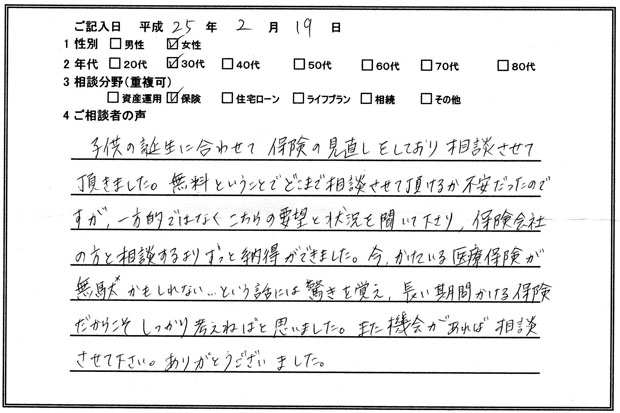 ご記入日 平成 25 年 2 月 19 日
1 性別 □男性 ☑女性
2 年代 □20代 ☑30代 □40代 □50代 □60代 □70代 □80代
3 相談分野(重複可)
□資産運用 ☑保険 □住宅ローン □ライフプラン □相続 □その他
4 ご相談者の声
子供の誕生に合わせて 保険の見直しをしており 相談させて
頂きました。無料ということでどこまで相談させて頂けるか不安だったので
すが、一方的ではなく こちらの要望と状況を聞いて下さり、保険会社
の方と相談するよりずっと納得ができました。今、かけている医療保険が
無駄かもしれない…という話には驚きを覚え、長い期間かける保険
だからこそ しっかり考えねばと思いました。また機会があれば 相談
させて下さい。ありがとうございました。